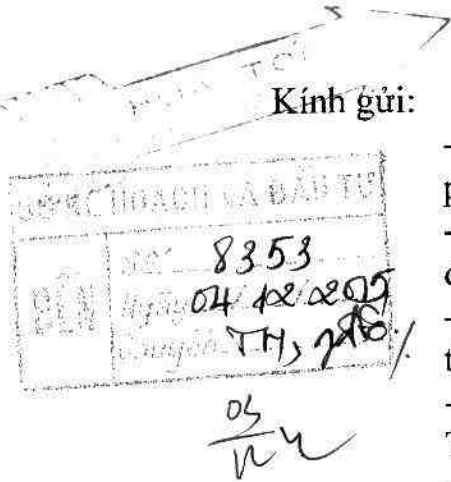 HỎA TỐC
Kính gửi:
SỞ KẾ HOẠCH VÀ ĐẦU TƯ
ĐẾN
Số: 8353
Ngày: 04/12/2015
Chuyển: TH,
-
p
-
-
t
-
T